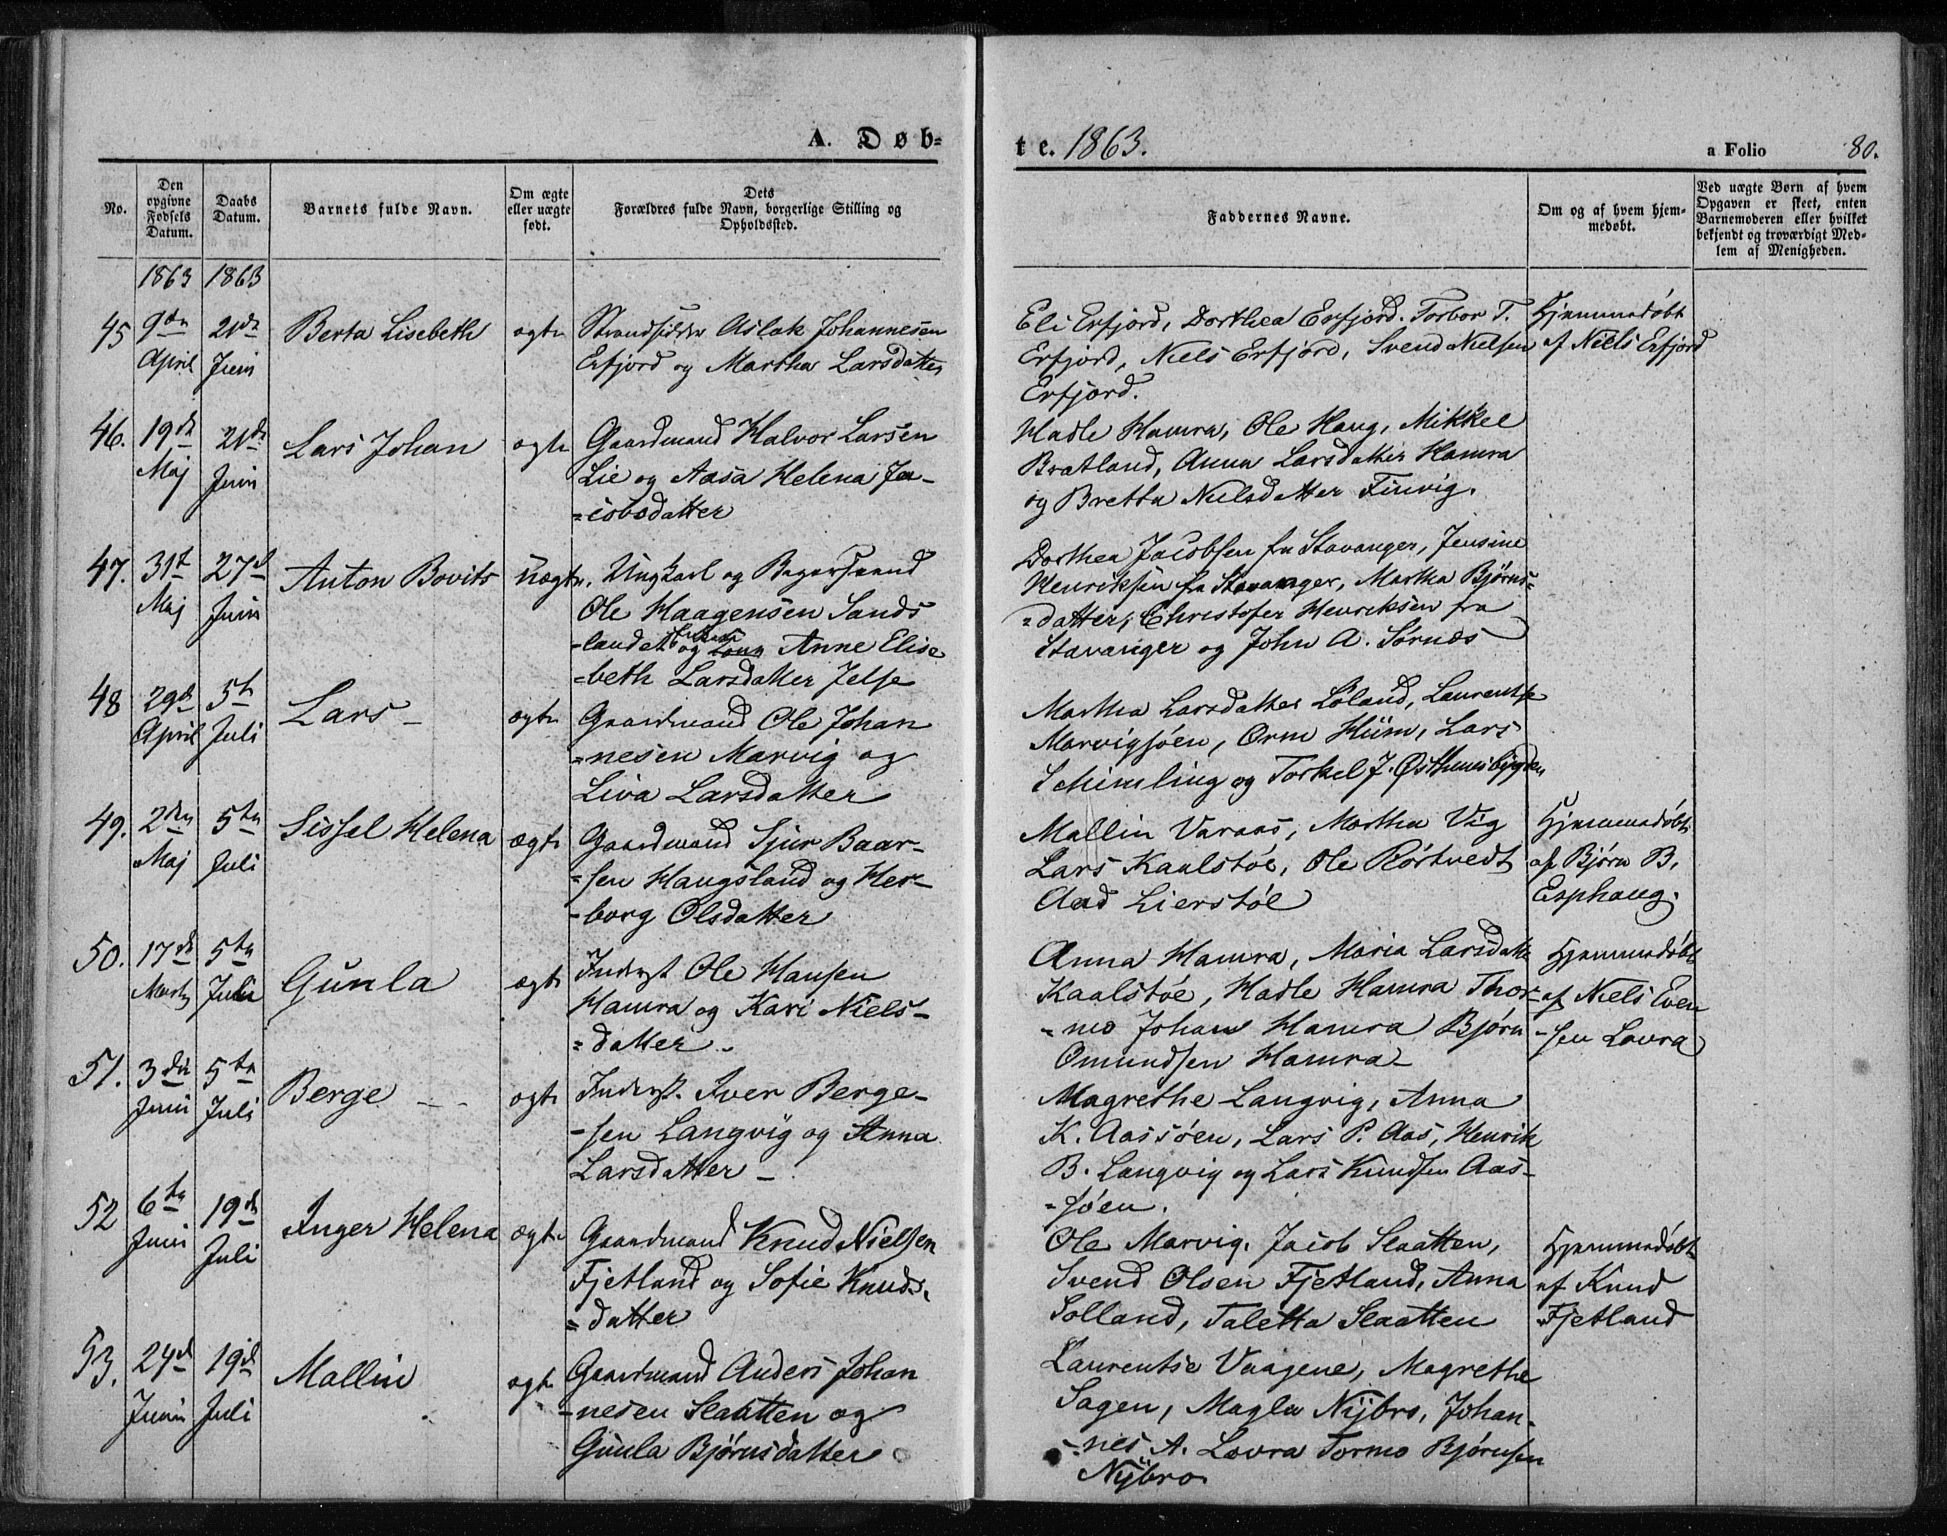 A. Døb-
te. 1863.
a Folio 80.
No.
Den opgivne Fødsels Datum.
Daabs Datum.
Barnets fulde Navn.
Om ægte eller uægte født.
Dets Forældres fulde Navn, borgerlige Stilling og Opholdssted.
Faddernes Navne.
Om og af hvem hjem-
medøbt.
Ved uægte Børn af hvem
Opgaven er skeet, enten
Barnemoderen eller hvilket
bekjendt og troværdigt Med-
lem af Menigheden.
1863 1863
45
9de April
21de Juni
Berta Lisebeth
ægte
Strandsidder Aslak Johannesen
Erfjord og Martha Larsdatter
Eli Erfjord, Dorthea Erfjord. Torbor T.
Erfjord, Niels Erfjord, Svend Nielsen
Erfjord.
Hjemmedøbt
af Niels Erfjord
46.
19de Maj
21de Juni
Lars Johan
ægte
Gaardmand Halvor Larsen
Lie og Aasa Helena Ja-
=cobsdatter
Hadle Hamra, Ole Haug, Mikkel
Bratland, Anna Larsdatter Hamra
og Bretta Nielsdatter Finvig.
47.
31t Maj
27d Juni
Anton Bovits
uægte.
Ungkarl og Bagersvend
Ole Haagensen Sands
-landet og Anne Elise
=beth Larsdatter Jelse
Dorthea Jacobsen fra Stavanger, Jensine
Henriksen fra Stavanger, Martha Bjørns=
=datter, Christofer Henriksen fra
Stavanger og John A. Sørnes
48
29de April
5t Juli
Lars -
ægte
Gaardmand Ole Johan
=nesen Marvig og
Liva Larsdatter
Martha Larsdatter Løland, Laurentse
Marvigsøen, Orm Hüm, Lars
Schimling og Torkel J. Østhunsbygden
49.
2den Maj
5te Juli
Sissel Helena
ægte
Gaardmand Sjur Baar-
=sen Haugsland og Her-
-borg Olsdatter
Mallin Varaas, Martha Vig
Lars Kaalstøe, Ole Rørtvedt
Aad Lierstøl
Hjemmedøbt
af Bjørn B.
Esphaug.
50.
17de Marts
5te Juli
Gunla
ægte
Inderst Ole Hansen
Hamra og Kari Niels-
=datter.
Anna Hamra, Maria Larsdatter
Kaalstøe, Hadle Hamra Thor-
=mo Johan Hamra Bjørn
Omundsen Hamra
Hjemmedøbt
af Niels Even
-sen Lovra
51.
3die Juni
5te Juli
Berge - -
ægte
Inderst. Iver Berge-
-sen Langvig og Anna
Larsdatter -
Magrethe Langvig, Anna
K. Aassøen, Lars P. Aas, Henrik
B. Langvig og Lars Knudsen Aas-
-søen.
52
6te Juni
19de Juli
Inger Helena
ægte
Gaardmand Knud Nielsen
Fjetland og Sofie Knuds-
=datter
Ole Marvig. Jacob Slaatten,
Svend Olsen Fjetland, Anna
Solland, Taletta Slaatten
Hjemmedøbt
af Knud
Fjetland
53.
24d Juni
19de Juli
Mallin
ægte
Gaardmand Anders Johan
-nesen Slaatten og
Gunla Bjørnsdatter
Laurentse Vaagene, Magrethe
Sagen, Magla Nijbro, Johan-
-nes A. Lovra Tormo Bjørnsen
Nijbro